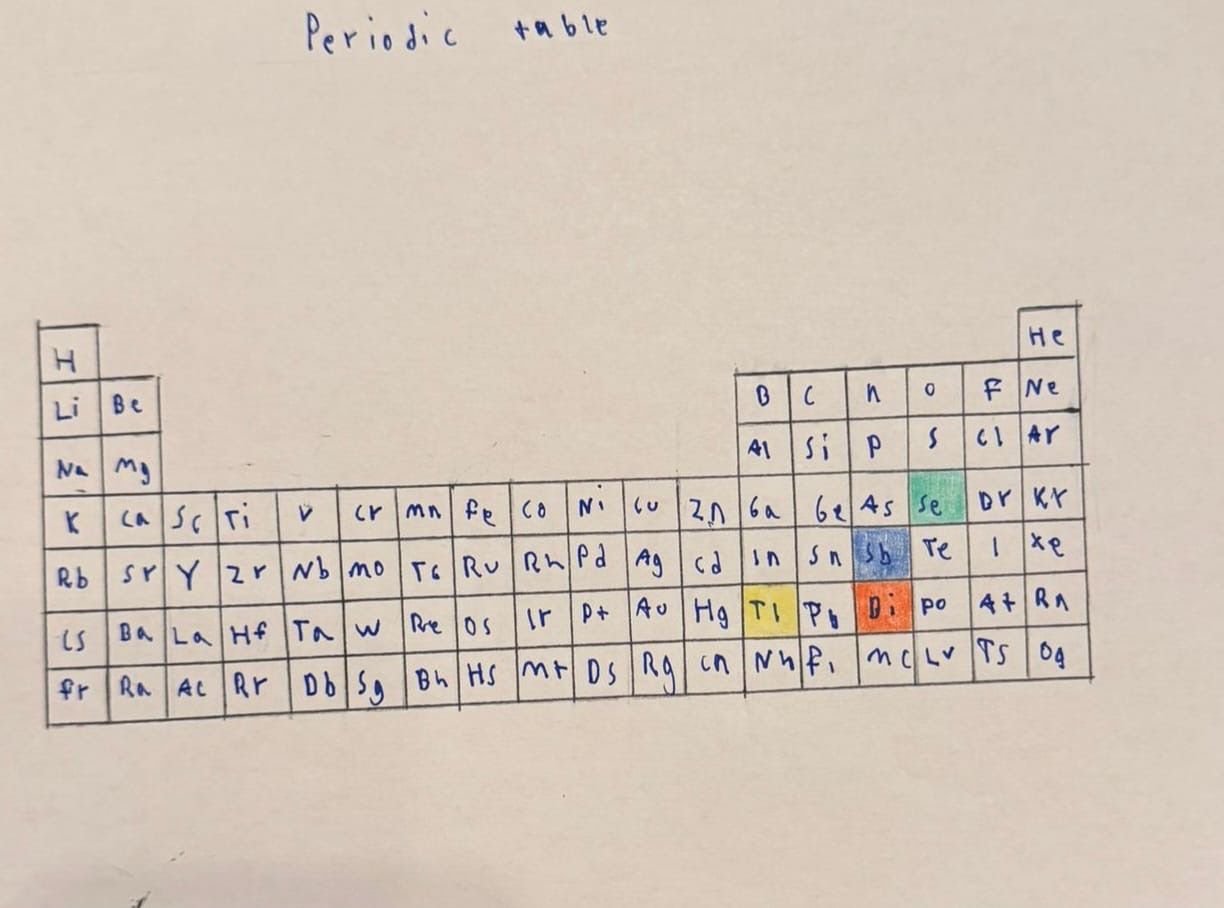 Periodic table
H He
Li Be B C n o F Ne
Na Mg Al Si P S Cl Ar
K Ca Sc Ti V Cr mn fe Co Ni Cu Zn Ga Ge As Se Br Kr
Rb Sr Y Zr Nb mo Tc Ru Rh Pd Ag Cd In Sn Sb Te I Xe
Cs Ba La Hf Ta W Re Os Ir Pt Au Hg Tl Pb Bi Po At Rn
fr Ra Ac Rr Db Sg Bh Hs mt Ds Rg Cn Nh fl mc Lv Ts Og